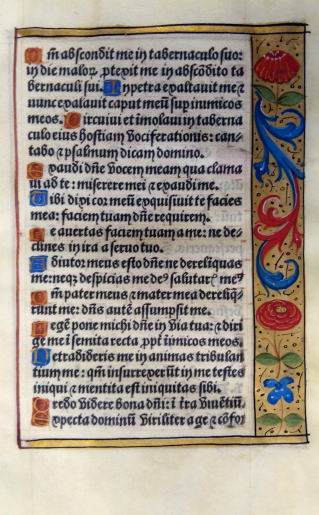 Qm̄ abscondit me in tabernaculo suo:
in die maloꝝ ꝓtexit me in abscōdito ta
bernaculi sui. In petra exaltauit me ⁊
nunc exaltauit caput meū sup inimicos
meos. Circuiui et imolaui in taberna
culo eius hostiam vociferationis: can⸗
tabo ⁊ psalmum dicam domino.
Exaudi dn̄e vocem meam qua clama
ui ad te: miserere mei ⁊ exaudi me.
Tibi dixi cor meū exquisiuit te facies
mea: faciem tuam dn̄e requirem.
Ne auertas faciem tuam a me: ne de⸗
clines in ira a seruo tuo.
Adiutor meus esto dn̄e ne derelīquas
me: neqꝫ despicias me deꝰ salutaꝝ meꝰ
Qm̄ pater meus ⁊ mater mea derelīq̄⸗
runt me: dn̄s autē assumpsit me.
Legē pone michi dn̄e in via tua: ⁊ diri
ge me ī semita recta ,ppt̄ inimicos meos.
Ne tradideris me in animas tribulan
tium me: qm̄ insurrexerūt in me testes
iniqui ⁊ mentita est iniquitas sibi.
Credo videre bona dn̄i: ī t̄ra viuētiū.
Expecta dominū viriliter age ⁊ cōfor